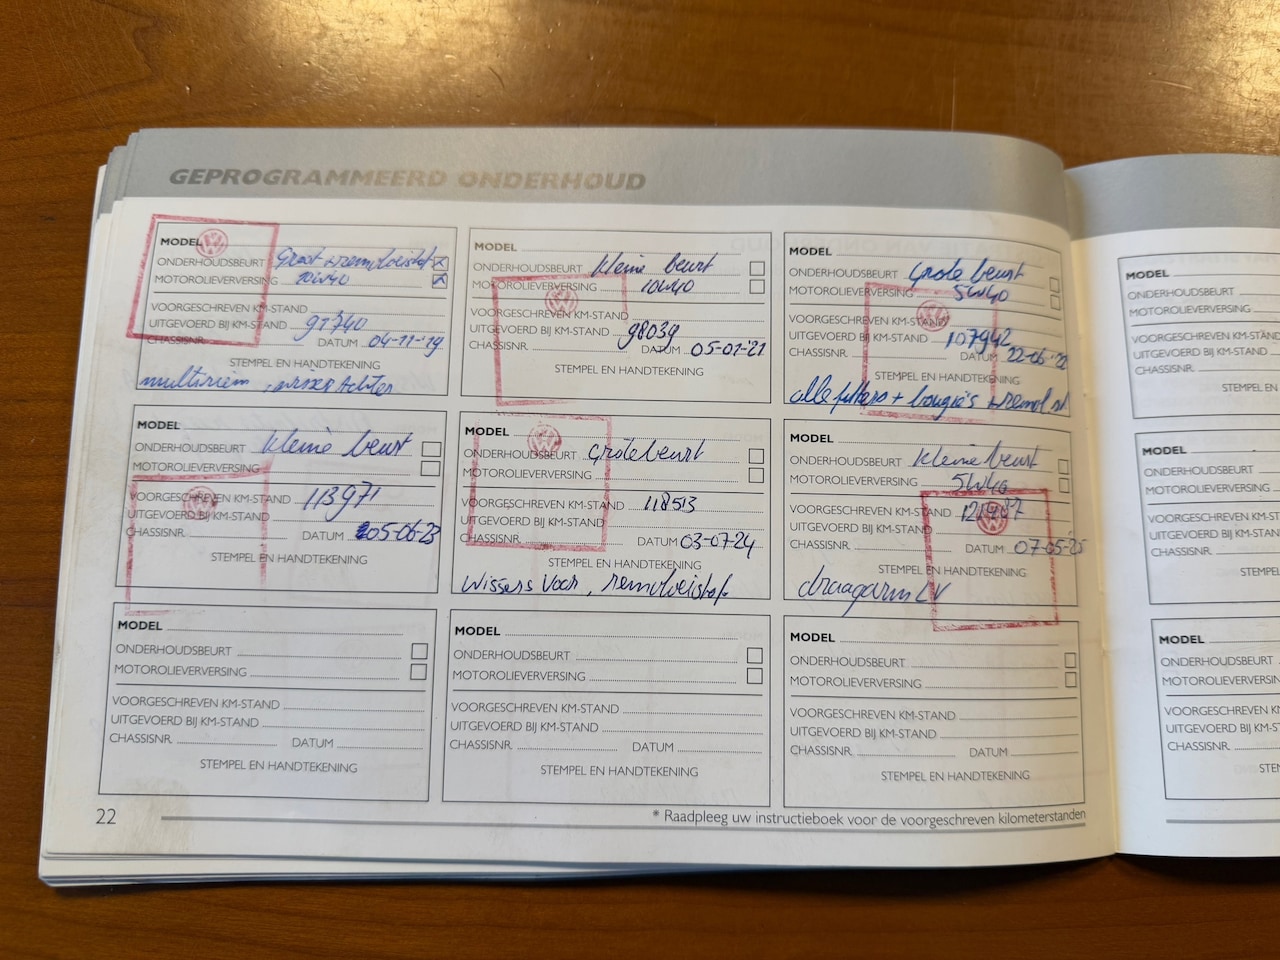 GEPROGRAMMEERD ONDERHOUD
MODEL
ONDERHOUDSBEURT Groot + remvloeistof
MOTOROLIEVERVERSING 10W40
VOORGESCHREVEN KM-STAND
UITGEVOERD BIJ KM-STAND 91740
CHASSISNR. DATUM 04-11-'19
STEMPEL EN HANDTEKENING
multiriem, wisser Achter
MODEL
ONDERHOUDSBEURT kleine beurt
MOTOROLIEVERVERSING 10W40
VOORGESCHREVEN KM-STAND
UITGEVOERD BIJ KM-STAND 98039
CHASSISNR. DATUM 05-01-'21
STEMPEL EN HANDTEKENING
MODEL
ONDERHOUDSBEURT Grote beurt
MOTOROLIEVERVERSING 5W40
VOORGESCHREVEN KM-STAND
UITGEVOERD BIJ KM-STAND 107942
CHASSISNR. DATUM 22-06-'22
STEMPEL EN HANDTEKENING
alle filters + bougie's + remvl st
MODEL
ONDERHOUDSBEURT kleine beurt
MOTOROLIEVERVERSING
VOORGESCHREVEN KM-STAND 113971
UITGEVOERD BIJ KM-STAND
CHASSISNR. DATUM 05-06-23
STEMPEL EN HANDTEKENING
MODEL
ONDERHOUDSBEURT Grote beurt
MOTOROLIEVERVERSING
VOORGESCHREVEN KM-STAND 118513
UITGEVOERD BIJ KM-STAND
CHASSISNR. DATUM 03-07-24
STEMPEL EN HANDTEKENING
Wissers Voor, remvloeistof
MODEL
ONDERHOUDSBEURT kleine beurt
MOTOROLIEVERVERSING 5W40
VOORGESCHREVEN KM-STAND
UITGEVOERD BIJ KM-STAND
CHASSISNR. DATUM 07-05-'25
STEMPEL EN HANDTEKENING
draagarm LV
MODEL
ONDERHOUDSBEURT
MOTOROLIEVERVERSING
VOORGESCHREVEN KM-STAND
UITGEVOERD BIJ KM-STAND
CHASSISNR. DATUM
STEMPEL EN HANDTEKENING
MODEL
ONDERHOUDSBEURT
MOTOROLIEVERVERSING
VOORGESCHREVEN KM-STAND
UITGEVOERD BIJ KM-STAND
CHASSISNR. DATUM
STEMPEL EN HANDTEKENING
MODEL
ONDERHOUDSBEURT
MOTOROLIEVERVERSING
VOORGESCHREVEN KM-STAND
UITGEVOERD BIJ KM-STAND
CHASSISNR. DATUM
STEMPEL EN HANDTEKENING
22
* Raadpleeg uw instructieboek voor de voorgeschreven kilometerstanden
MODEL
ONDERHOUDSBEURT
MOTOROLIEVERVERSING
VOORGESCHREVEN KM
UITGEVOERD BIJ KM-S
CHASSISNR.
STEMPEL EN
MODEL
ONDERHOUDSBEURT
MOTOROLIEVERVERSING
VOORGESCHREVEN KM
UITGEVOERD BIJ KM-S
CHASSISNR.
STEMPEL
MODEL
ONDERHOUDSBEURT
MOTOROLIEVERVERSING
VOORGESCHREVEN KM
UITGEVOERD BIJ KM-S
CHASSISNR.
STEM